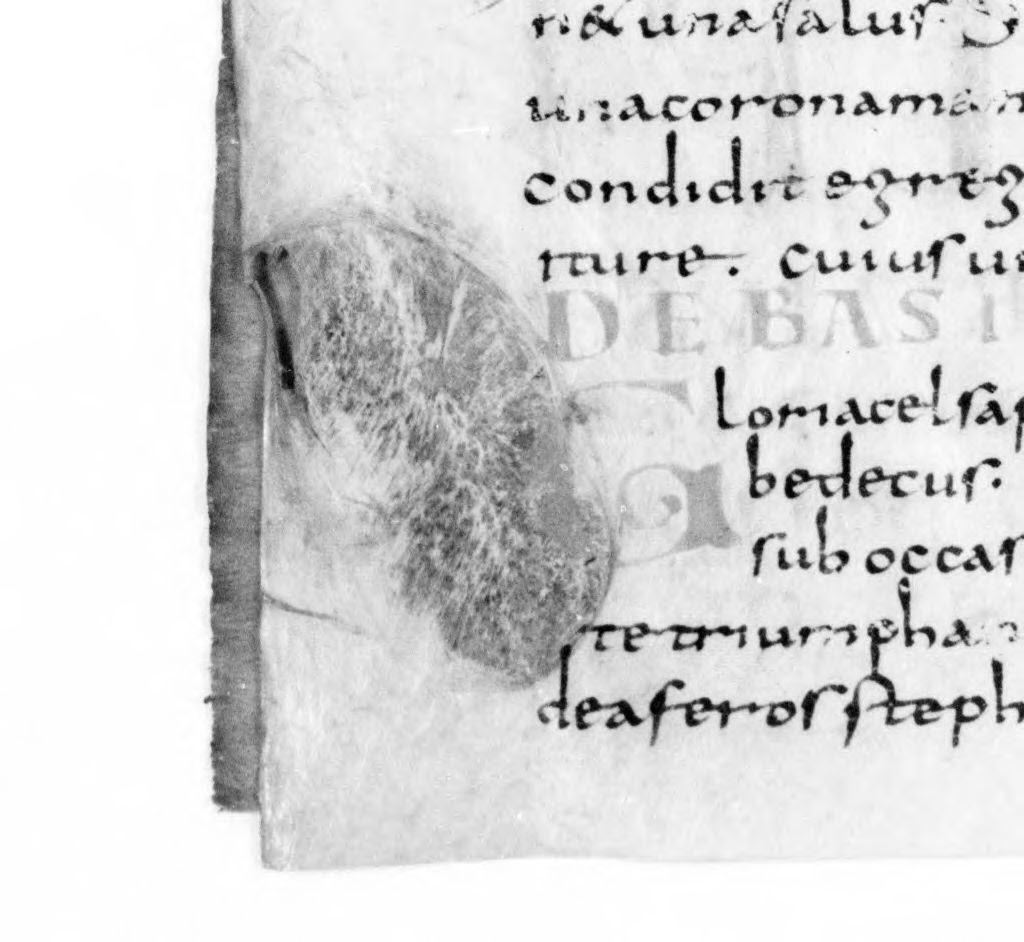 n& una salus.
una corona ma
condidit egreg
rture. Cuius u
DE BAS I
G loria celsa
be decus.
sub occas
te triumpha
dea feros steph